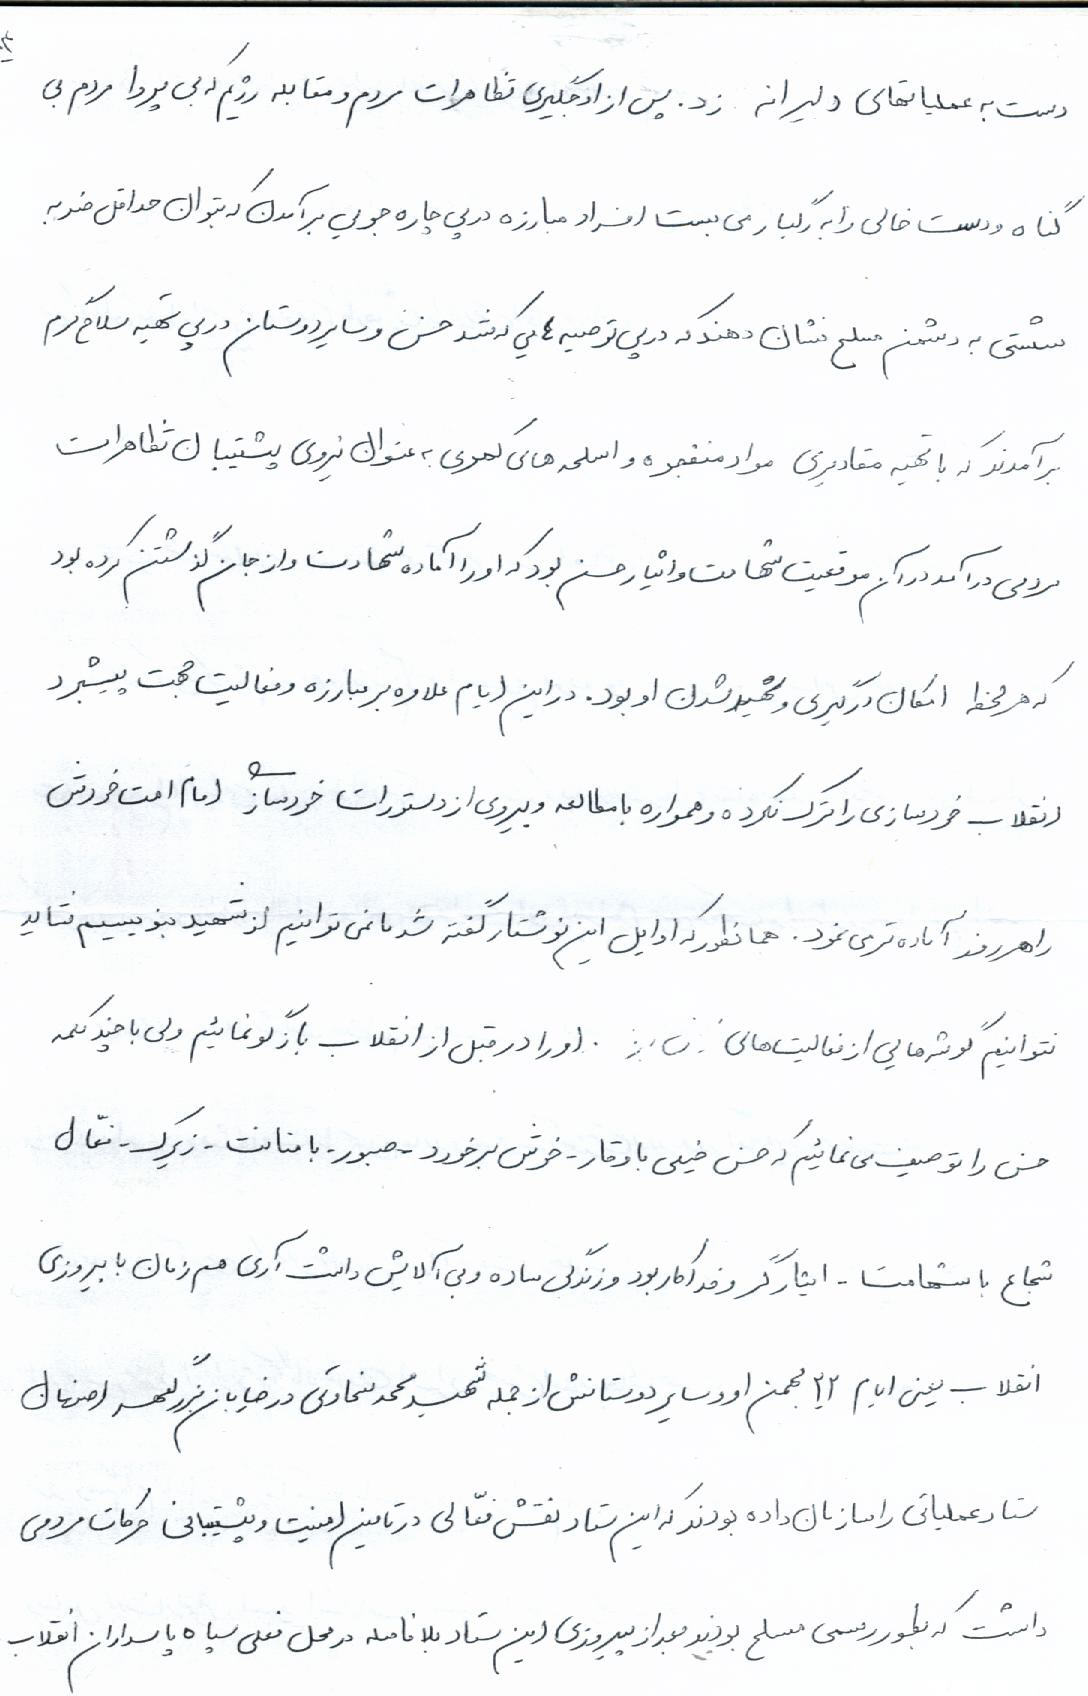 دست به عملیاتهای دلیرانه زد. پس از اوجگیری تظاهرات مردم و مقابله رژیم که بی پروا مردم بی
گناه و دست خالی را به رگبار می بست افراد مبارزه در پی چاره جویی برآمدن که بتوان حداقل ضربه
شستی به دشمن مسلح نشان دهند که در پی توصیه هایی که شد حسن و سایر دوستان در پی تهیه سلاح گرم
برآمدند که با تهیه مقادیری مواد منفجره و اسلحه های کمری به عنوان نیروی پشتیبان تظاهرات
مردمی درآمد در آن موقعیت شهامت و ایثار حسن بود که او را آماده شهادت و از جان گذشتن کرده بود
که هر لحظه امکان درگیری و شهید شدن او بود. در این ایام علاوه بر مبارزه و فعالیت جهت پیشبرد
انقلاب خودسازی را ترک نکرده و همواره با مطالعه و پیروی از دستورات خودسازی امام امت خودش
را هر روز آماده تر می نمود. همانطور که اوایل این نوشتار گفته شد ما نمی توانیم از شهید بنویسیم شاید
نتوانیم گوشه هایی از فعالیت های او را در قبل از انقلاب بازگو نمائیم ولی با چند کلمه
حسن را توصیف می نمائیم که حسن خیلی با وقار - خوش برخورد - صبور - با متانت - زیرک - فعّال
شجاع با شهامت - ایثارگر و فداکار بود و زندگی ساده و بی آلایش داشت آری هم زمان با پیروزی
انقلاب یعنی ایام ۲۲ بهمن او و سایر دوستانش از جمله شهید محمد در خیابان بزرگمهر اصفهان
ستاد عملیاتی را سازمان داده بودند که این ستاد نقش فعّالی در تامین امنیت و پشتیبانی حرکات مردمی
داشت که بطور رسمی مسلح بودند و بعد از پیروزی این ستاد بلافاصله در محل فعلی سپاه پاسداران انقلاب